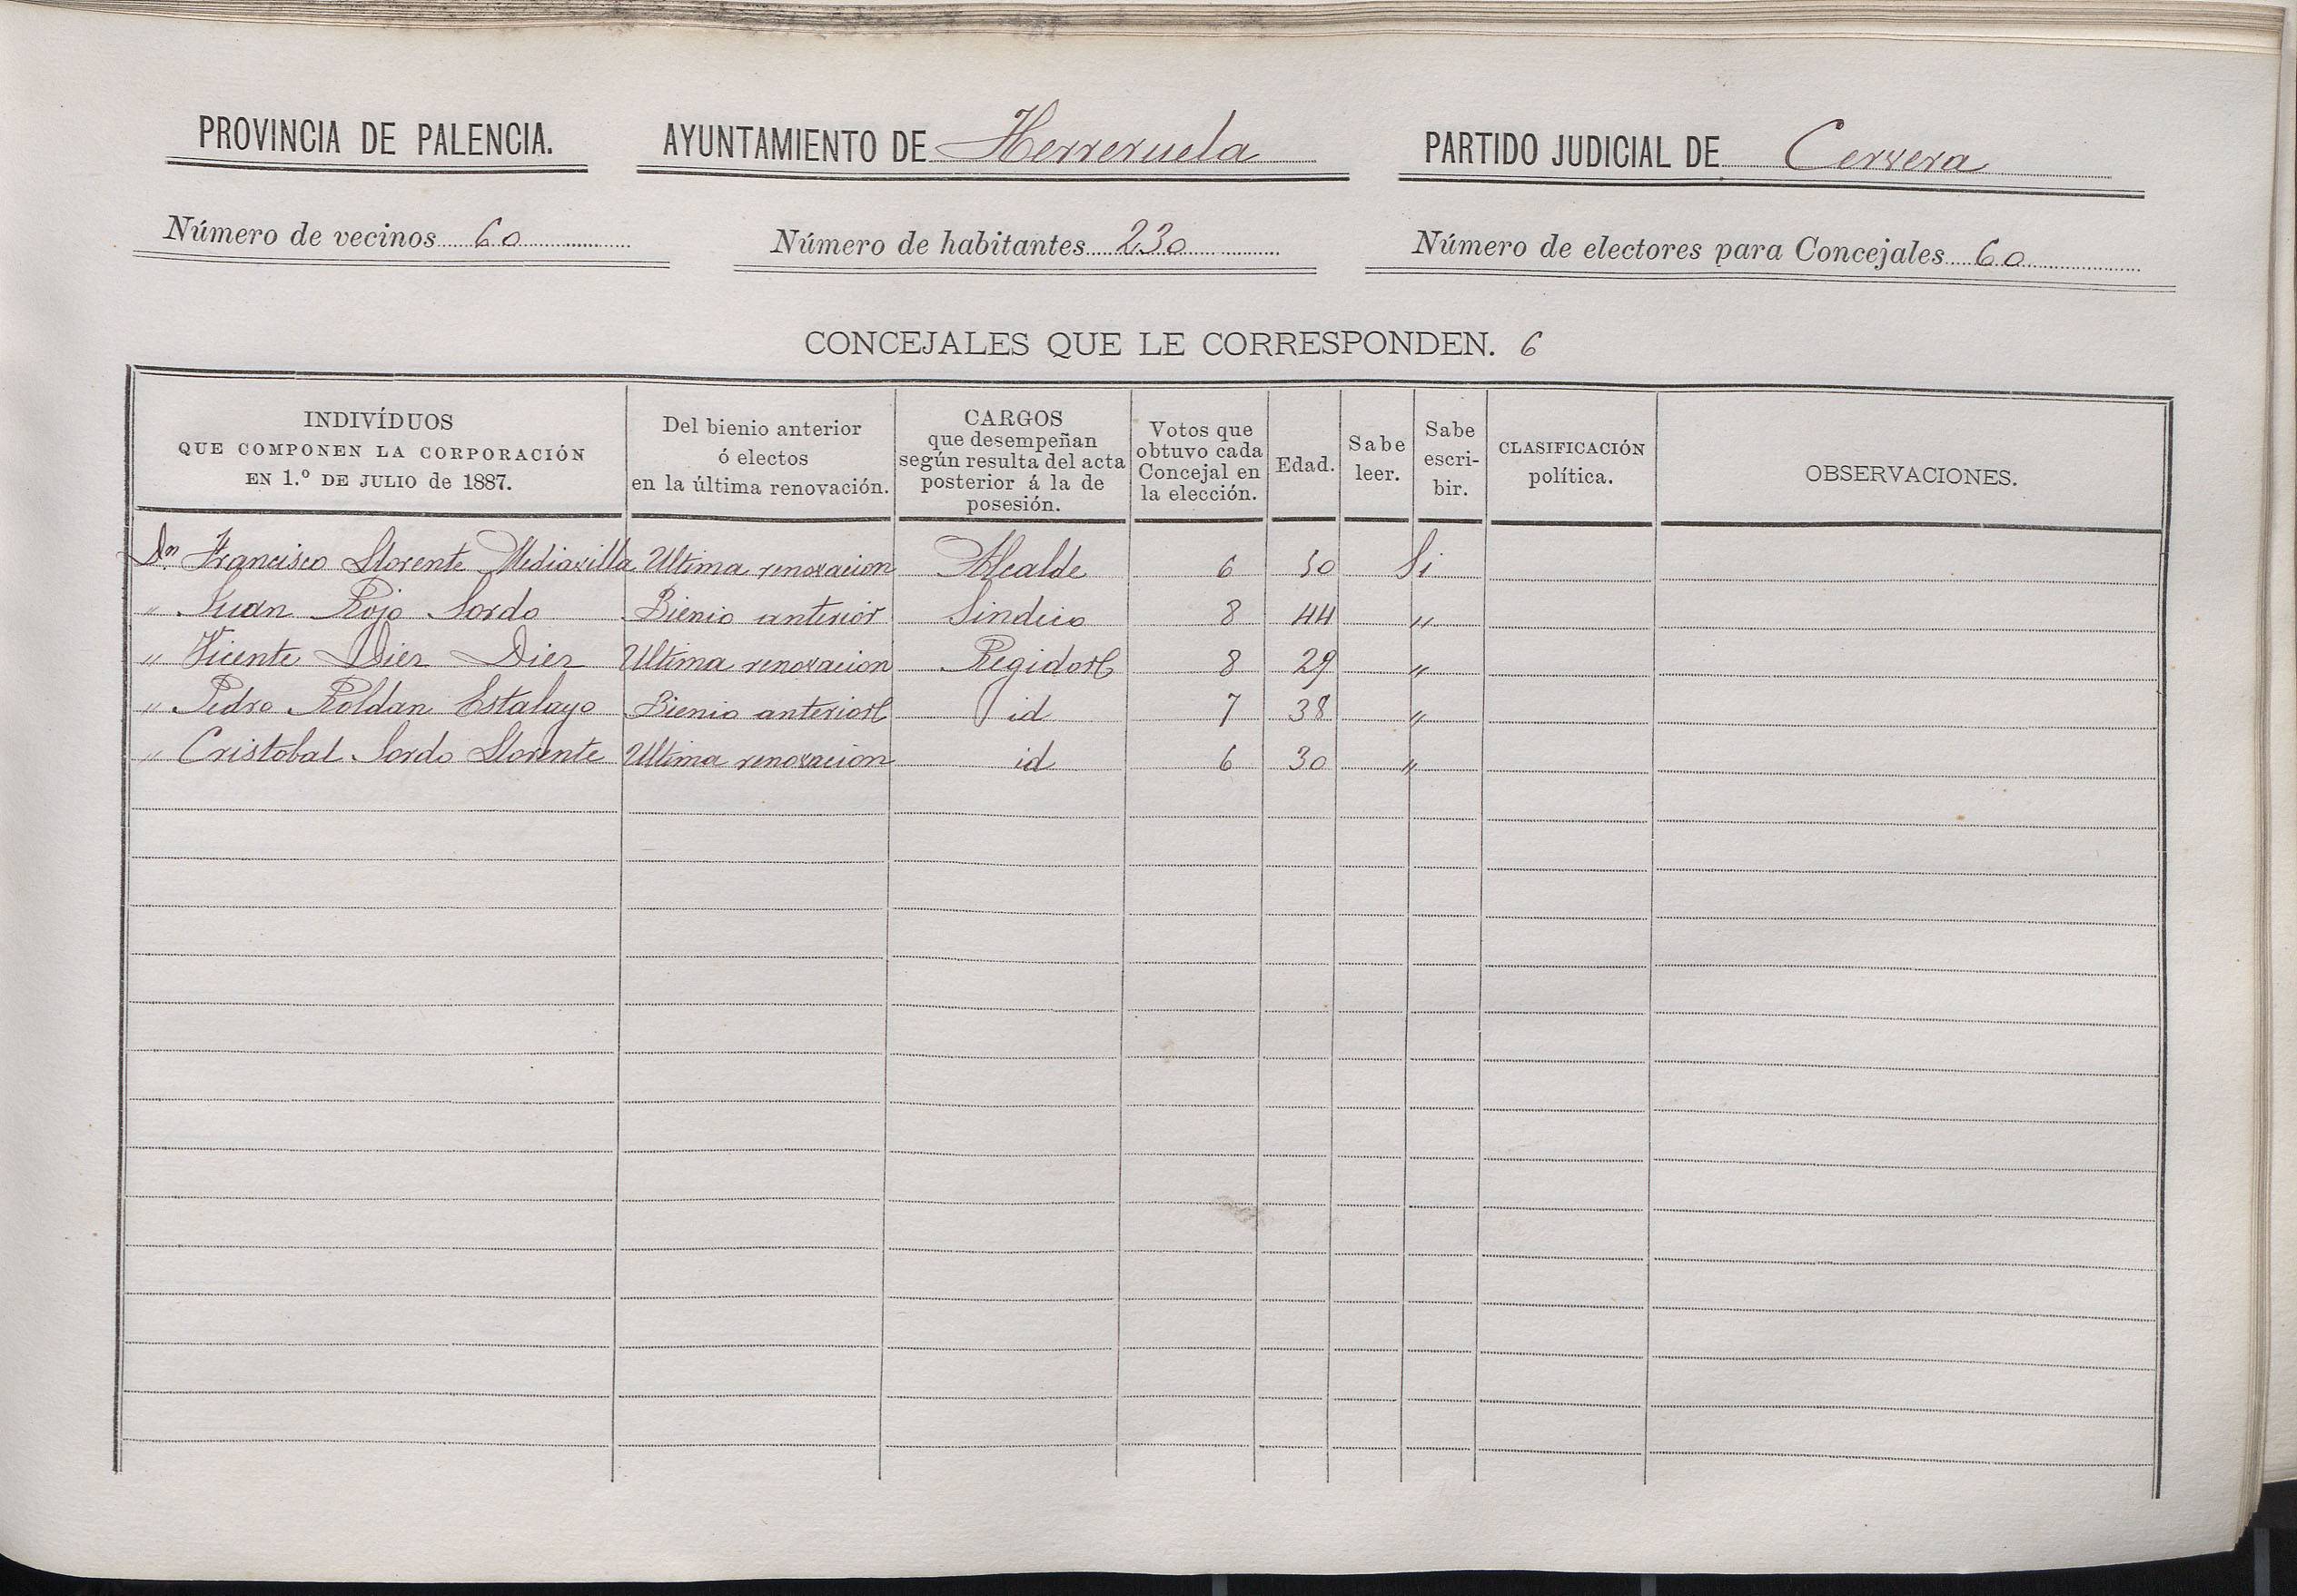 PROVINCIA DE PALENCIA. AYUNTAMIENTO DE Herreruela PARTIDO JUDICIAL DE Cervera
Número de vecinos 60 Número de habitantes 230 Número de electores para Concejales 60
CONCEJALES QUE LE CORRESPONDEN. 6
INDIVÍDUOS
QUE COMPONEN LA CORPORACIÓN
EN 1.º DE JULIO de 1887.
Del bienio anterior
ó electos
en la última renovación.
CARGOS
que desempeñan
según resulta del acta
posterior á la de
posesión.
Votos que
obtuvo cada
Concejal en
la elección.
Edad.
Sabe
leer.
Sabe
escri-
bir.
CLASIFICACIÓN
política.
OBSERVACIONES.
Dn Francisco Llorente Mediavilla Ultima renovacion Alcalde 6 50 Si
" Juan Rojo Sordo Bienio anterior Sindico 8 44 "
" Vicente Diez Diez Ultima renovacion Regidor 8 29 "
" Pedro Roldan Estalayo Bienio anterior id 7 38 "
" Cristobal Sordo Llorente Ultima renovacion id 6 30 "